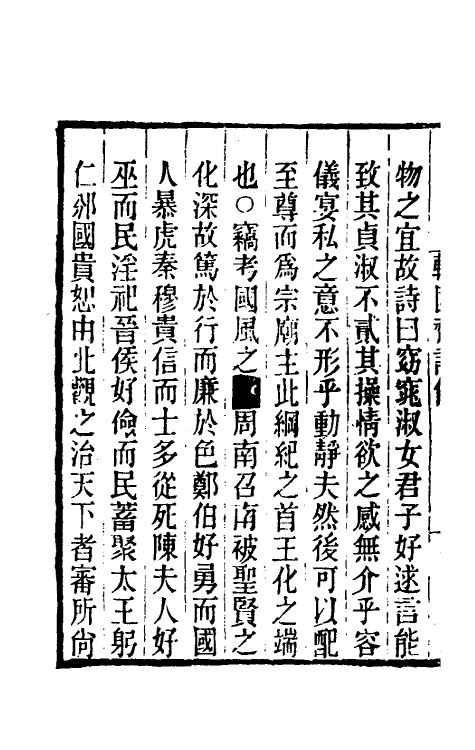 物之宜故詩曰窈窕淑女君子好逑言能
致其貞淑不貳其操情欲之感無介乎容
儀宴私之意不形乎動靜夫然後可以配
至尊而爲宗廟主此綱紀之首王化之端
也○竊考國風之 周南召南被聖賢之
化深故篤於行而廉於色鄭伯好勇而國
人暴虎秦穆貴信而士多從死陳夫人好
巫而民淫祀晉侯好儉而民蓄聚太王躬
仁邠國貴恕由此觀之治天下者審所尚